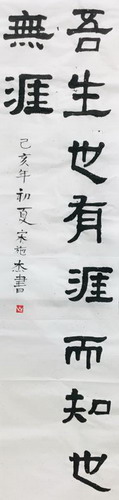 吾生也有涯而知也
無涯
己亥年初夏宋施杰書